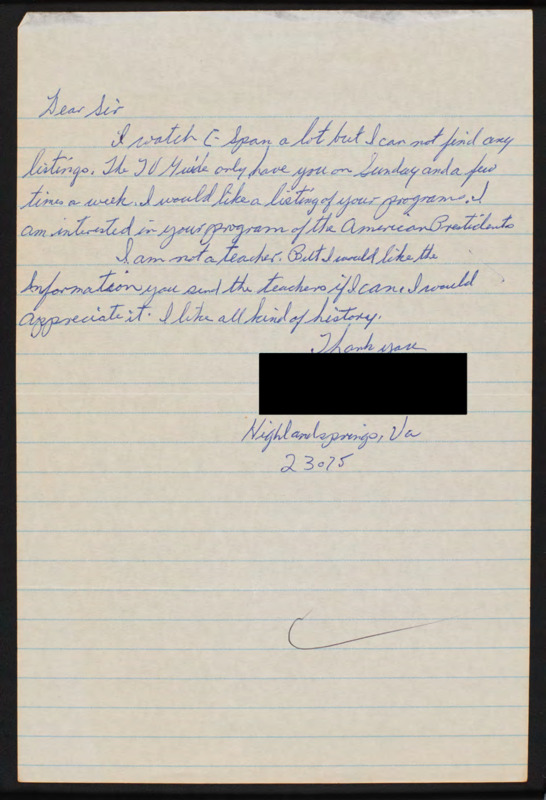 Dear Sir
I watch C-Span a lot but I can not find any
listings. The TV Guide only have you on Sunday and a few
times a week. I would like a listing of your programs. I
am interested in your program of the American Presidents
I am not a teacher. But I would like the
Information you send the teachers if I can. I would
appreciate it. I like all kind of history.
Thank you
Highlandsprings, Va
23075